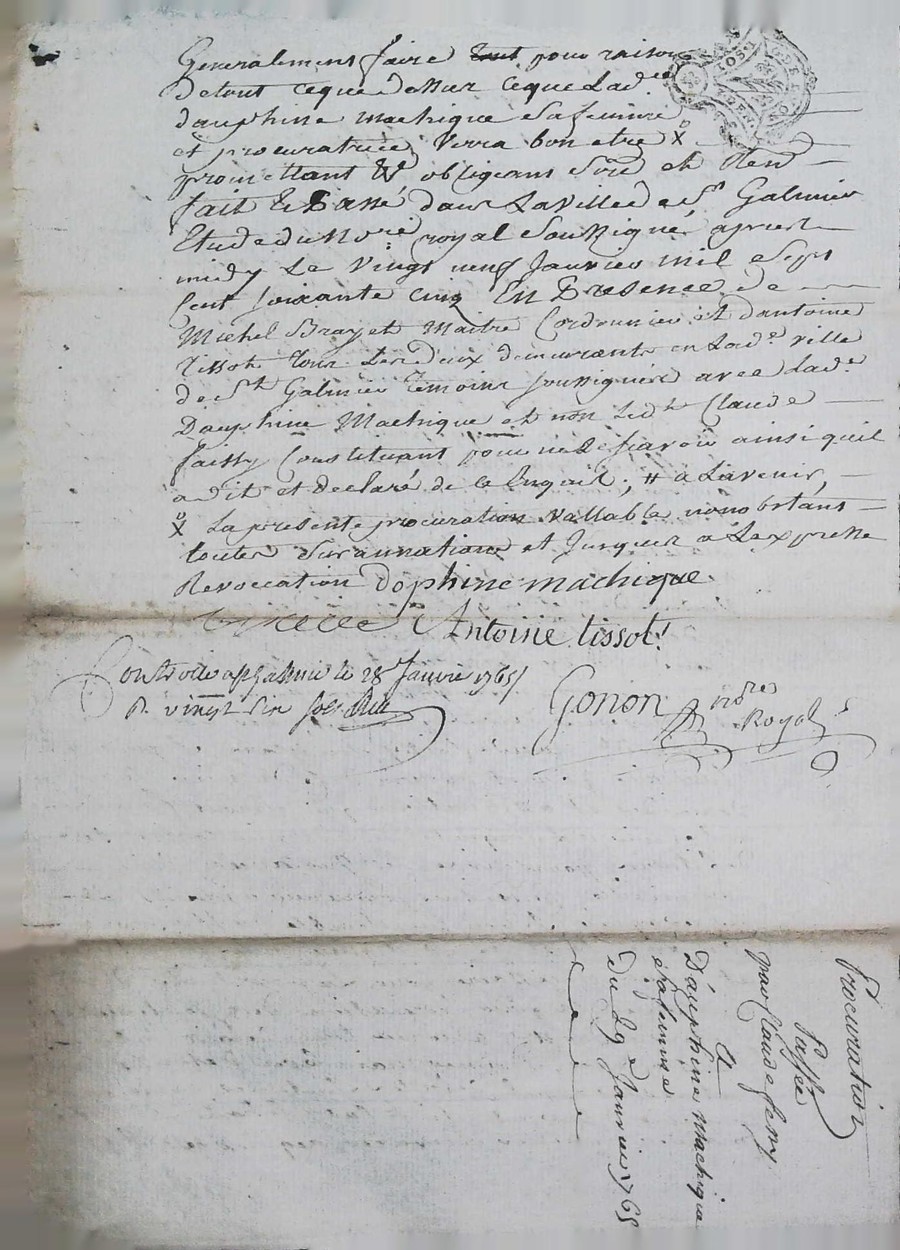 Generalement faire tout pour raison
de tout ce que dessus ce que Lad.e
dauphine machique sa femme
et procuratrice verra bon etre X
promettant & obligeant &ont et Ren
fait & Passé dans La ville de St Galmier
Etude du No.re royal soussigné apres
midy Le vingt neuf Janvier mil sept
Cent soixante cinq En Presence de
Michel Maitre Cordonnier et d'antoine
tissot tous Les Deux demeurants en Lad.e ville
de St Galmier temoins soussignés avec Lad.e
Dauphine Machique et non Led.t Claude
Constituant pour ne Le scavoir ainsi quil
a dit et declaré de ce Enquis; # a Lavenir,
X La presente procuration vallable nonobstant
toutes Surannations et Jusques a Lexpresse
Revoccation Dophine machique
Antoine tissot
Controllé a St Galmier le 28 Janvier 1765
R. vingt six sols
Gonon no.re Royal
Procuration
Passée
par Claude
A
Dauphine Machique
sa femme
Du 29 Janvier 1765